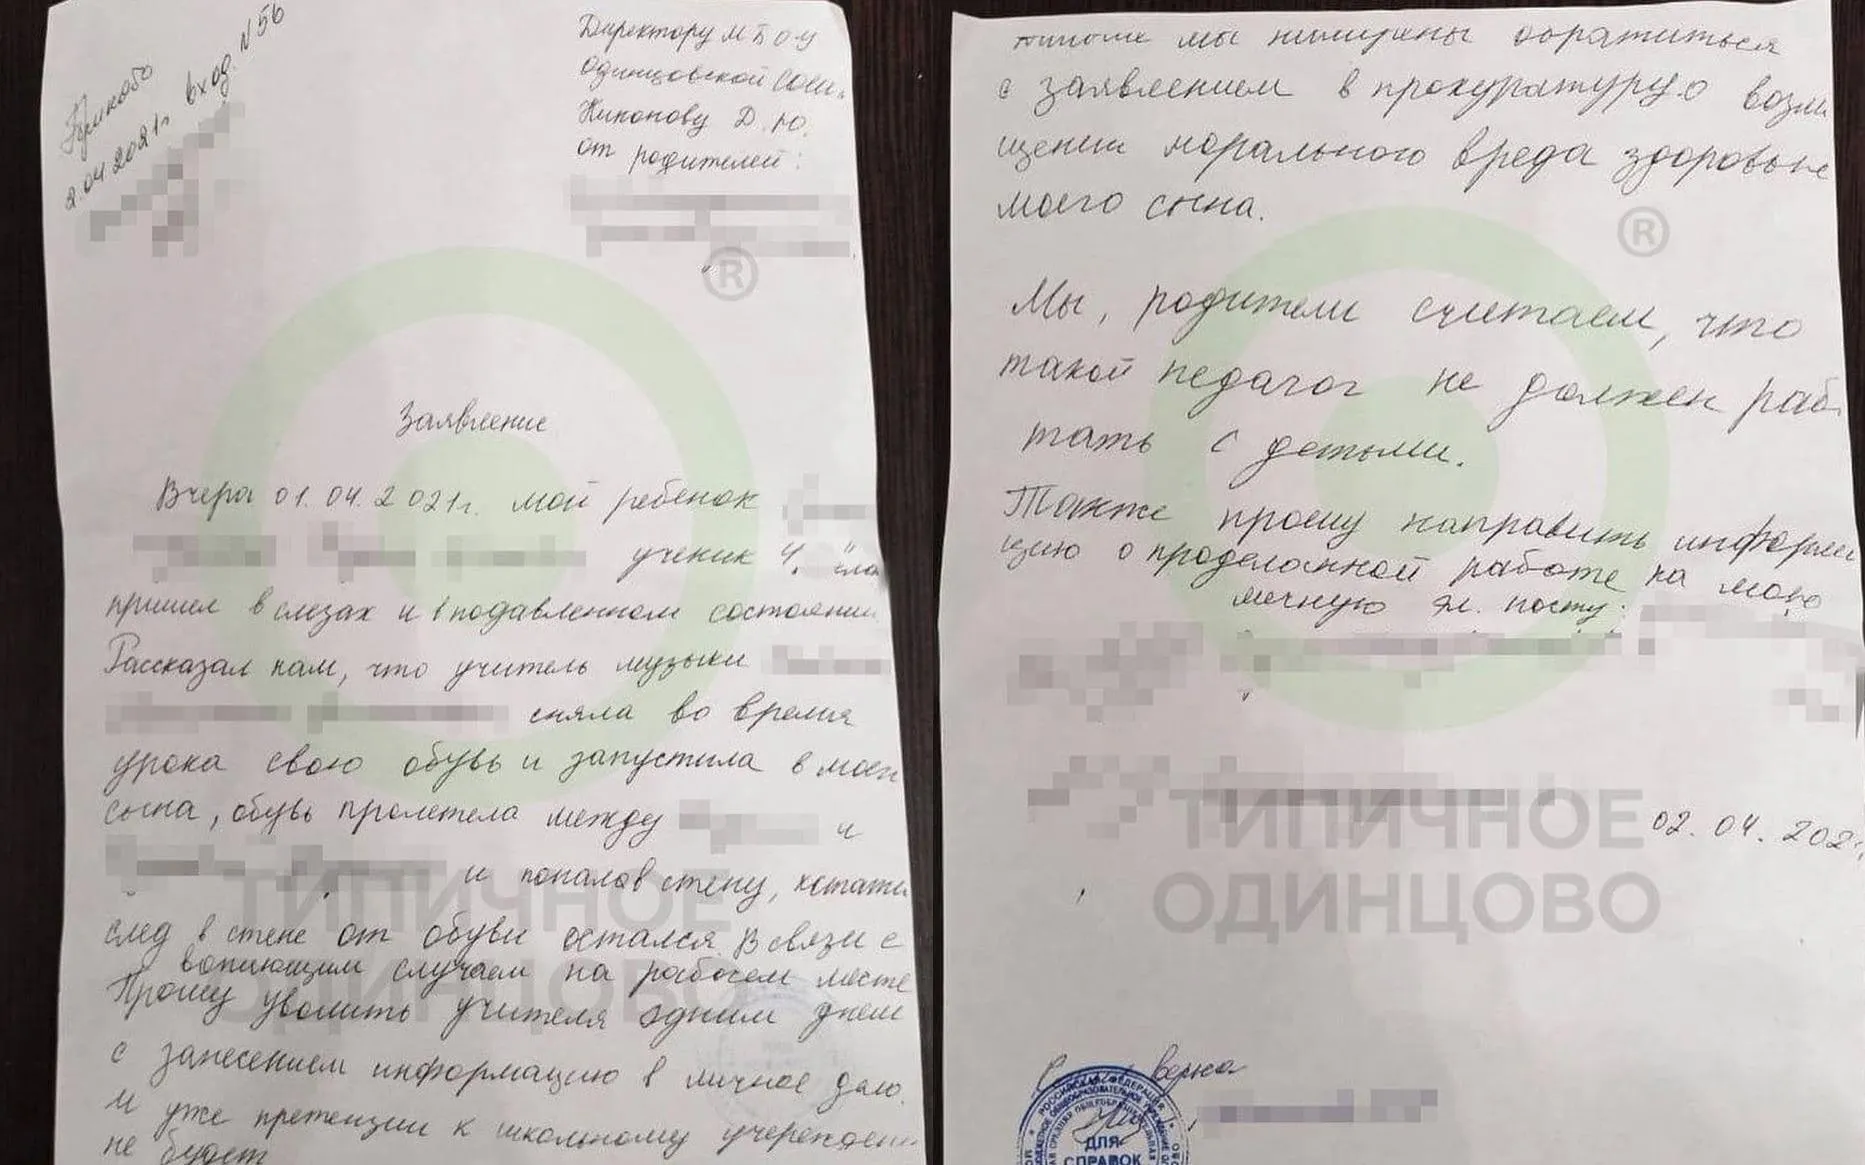 Принято
2.04.2021г. вход. №56
Директору МБОУ
Одинцовской СОШ
Никонову Д.Ю.
от родителей:
®
Заявление
Вчера 01.04.2021г. мой ребенок
ученик 4
пришел в слезах и в подавленном состоянии
Рассказал нам, что учитель музыки
сняла во время
урока свою обувь и запустила в моег
сына, обувь пролетела между
и
и попала в стену, кстати
след в стене от обуви остался. В связи с
вопиющим случаем на рабочем месте
Прошу уволить учителя одним днем
с занесением информацию в личное дело.
И уже претензии к школьному учережден
не будет
ТИПИЧНОЕ
ОДИНЦОВО
мы намерены обратиться
с заявлением в прокуратуру о возм
щении морального вреда здоровье
моего сына.
®
Мы, родители считаем, что
такой педагог не должен раб
тать с детьми.
Также прошу направить информа
цию о проделанной работе на мою
личную эл. почту:
02.04.202
ТИПИЧНОЕ
ОДИНЦОВО
верна
РОССИЙСКАЯ ФЕДЕРАЦИЯ
ДЛЯ
СПРАВОК